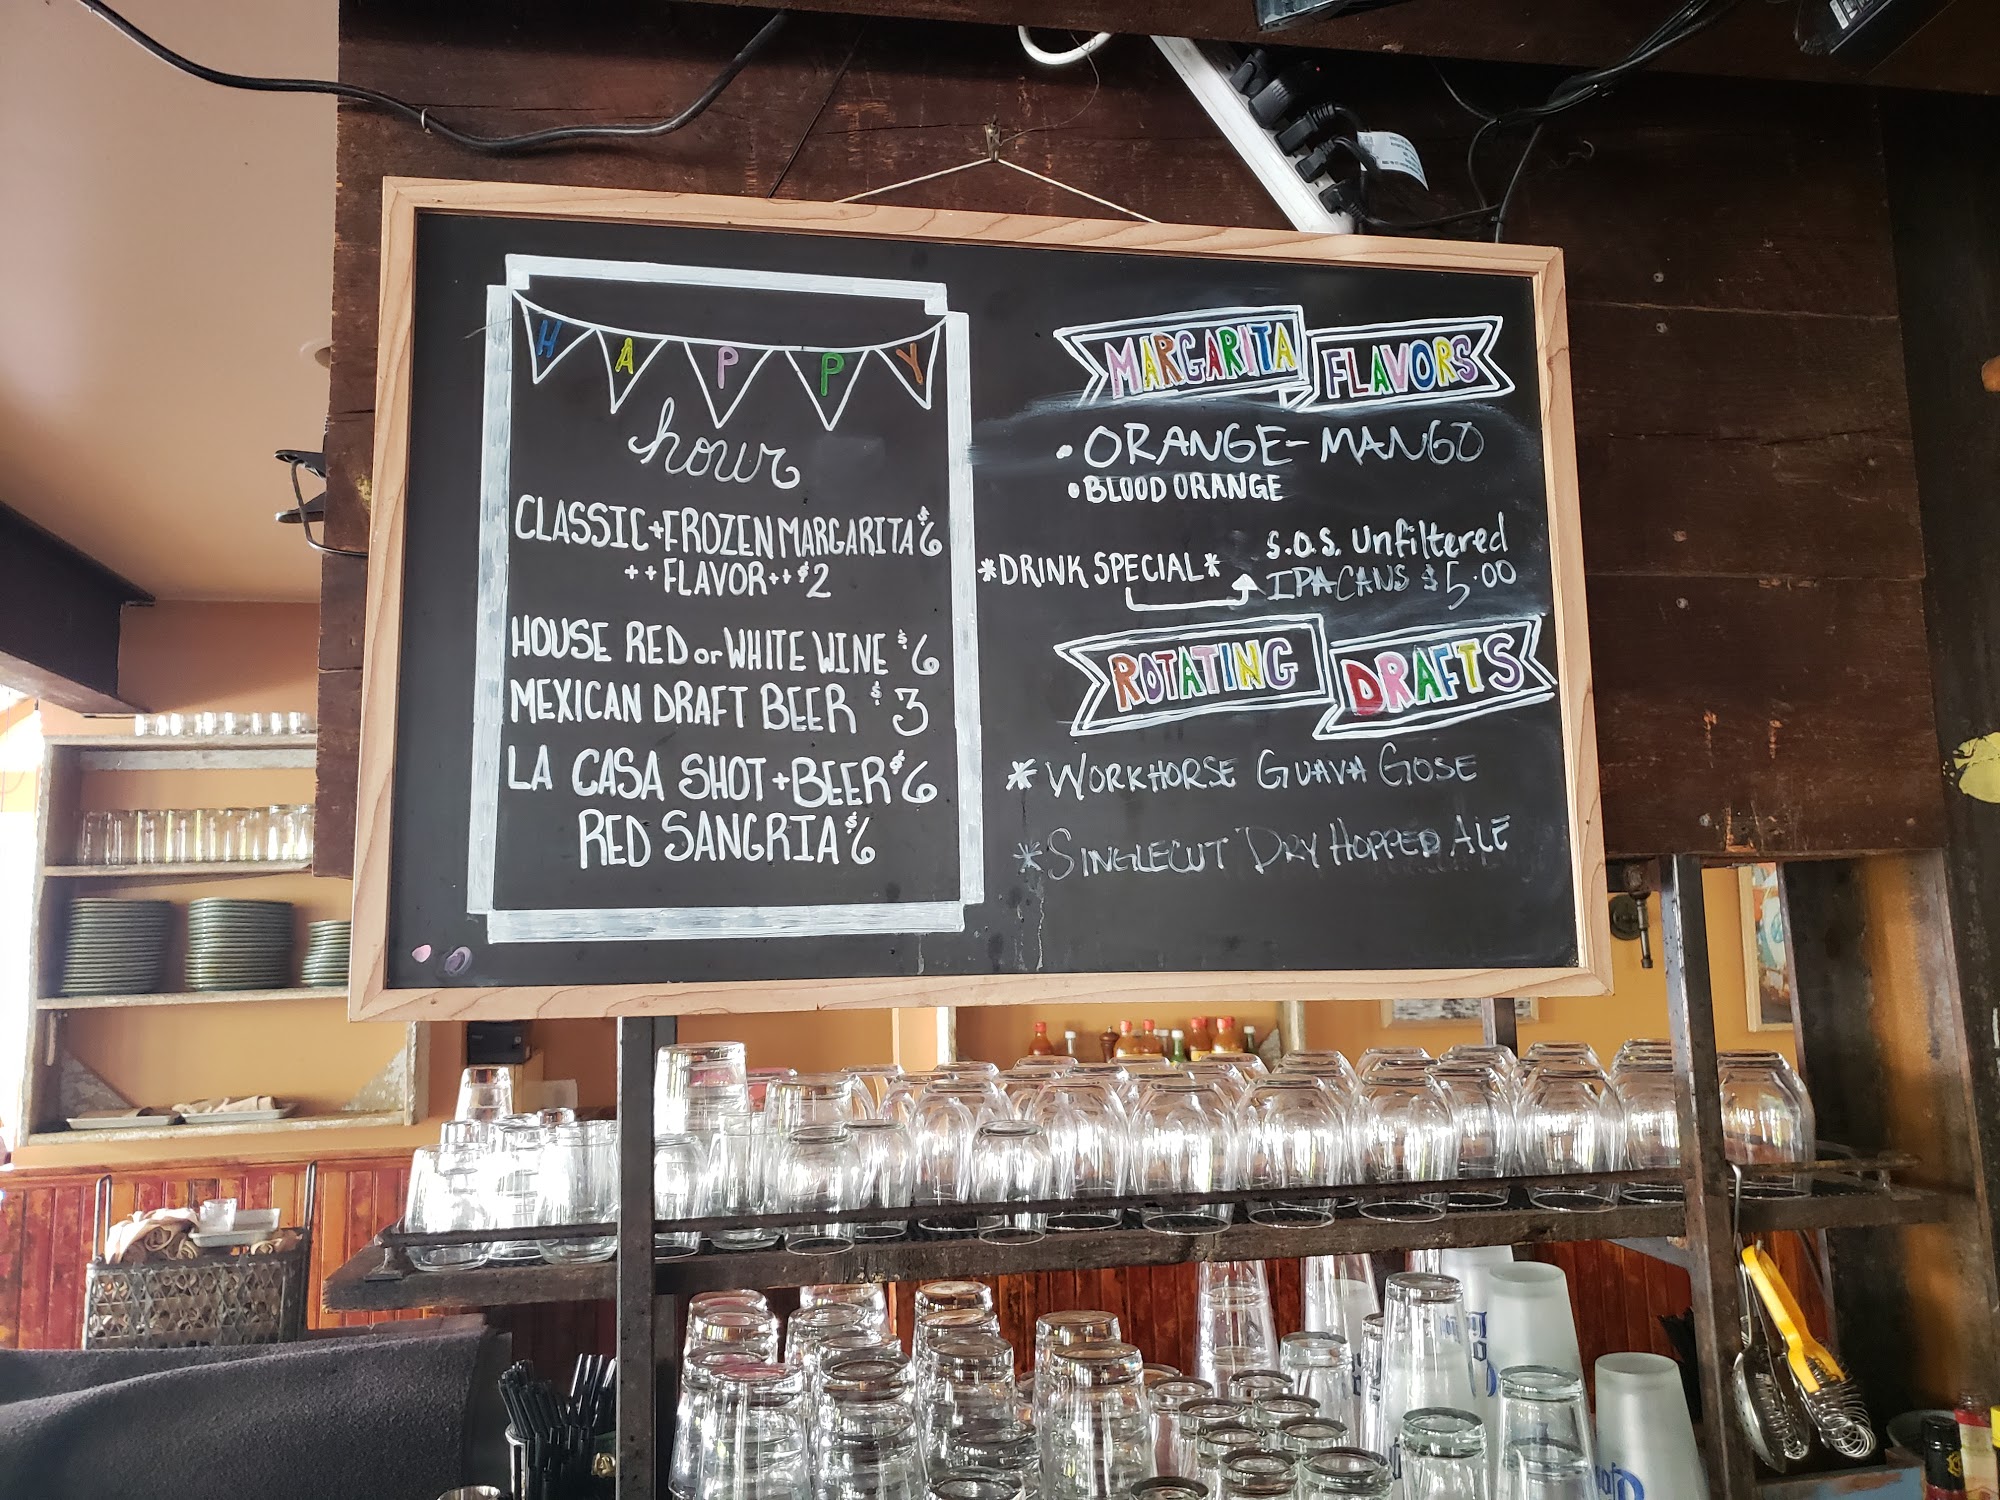 HAPPY
hour
CLASSIC + FROZEN MARGARITA $6
++ FLAVOR ++ $2
HOUSE RED or WHITE WINE $6
MEXICAN DRAFT BEER $3
LA CASA SHOT + BEER $6
RED SANGRIA $6
MARGARITA FLAVORS
• ORANGE-MANGO
• BLOOD ORANGE
*DRINK SPECIAL*
S.O.S. Unfiltered
IPA CANS $5.00
ROTATING DRAFTS
* WORKHORSE GUAVA GOSE
* SINGLECUT DRY HOPPED ALE